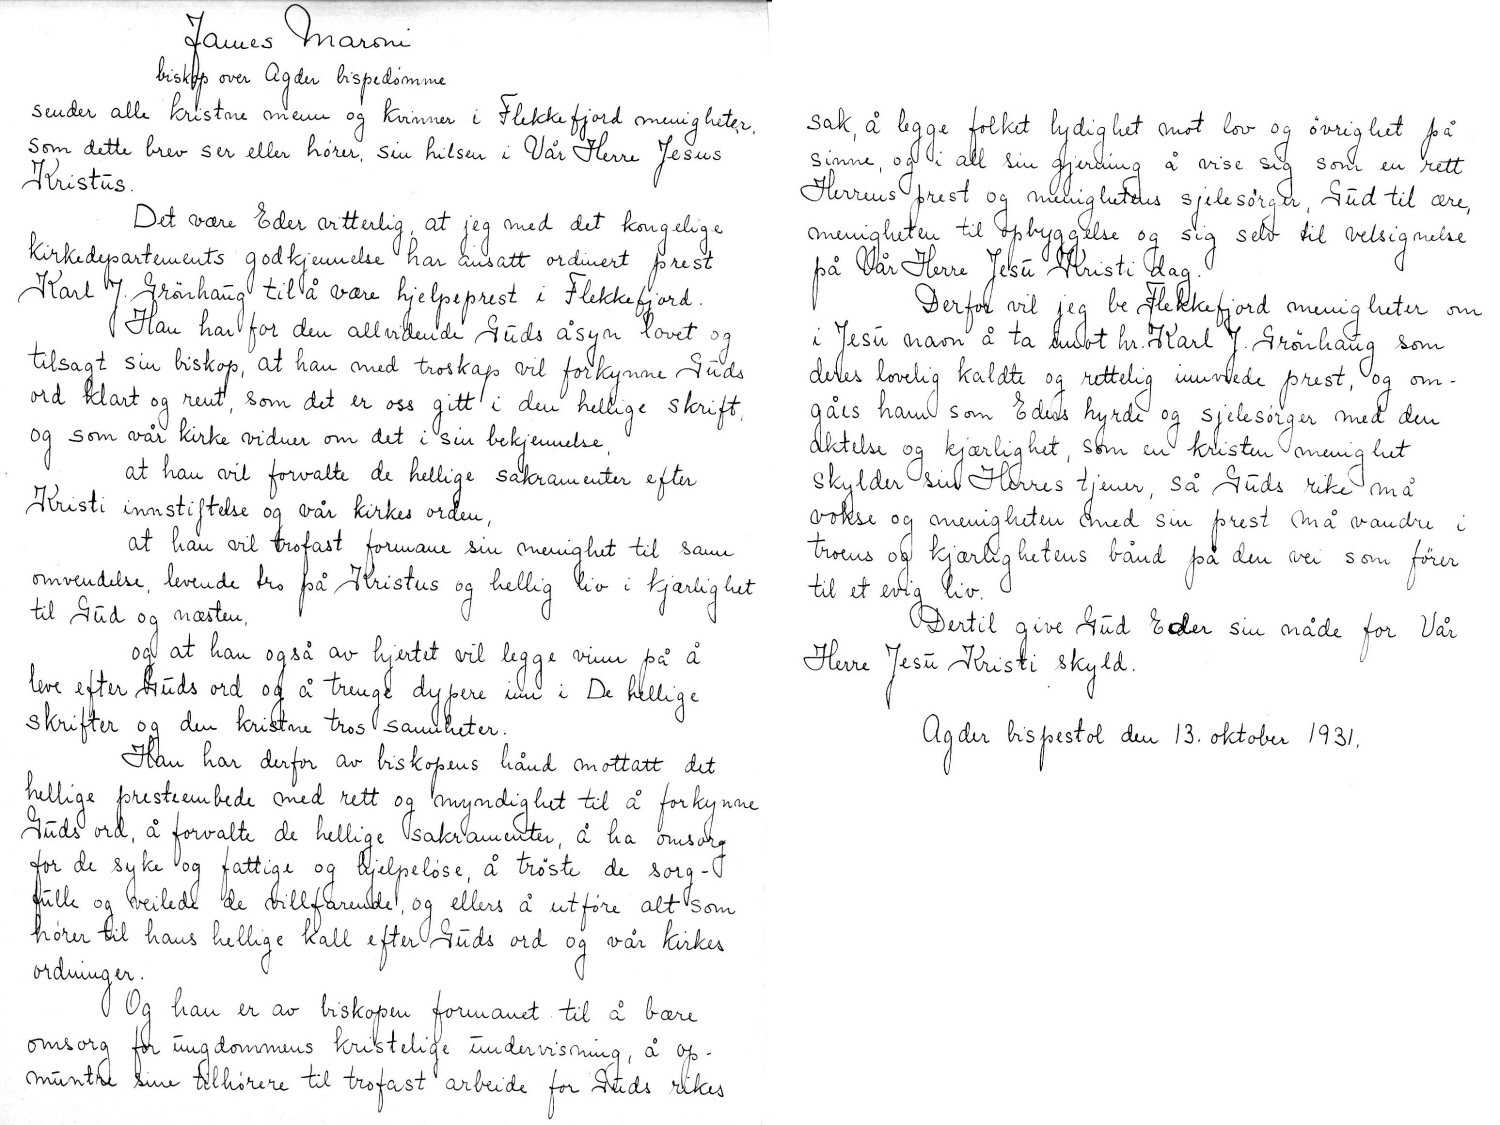 James Maroni
biskop over Agder bispedømme
sender alle kristne menn og kvinner i Flekkefjord menigheter,
som dette brev ser eller hører, sin hilsen i Vår Herre Jesus
Kristus.
Det være Eder vitterlig, at jeg med det kongelige
kirkedepartements godkjennelse har ansatt ordinert prest
Karl J. Grönhaug til å være hjelpeprest i Flekkefjord.
Han har for den allvidende Guds åsyn lovet og
tilsagt sin biskop, at han med troskap vil forkynne Guds
ord klart og rent, som det er oss gitt i den hellige skrift,
og som vår kirke vidner om det i sin bekjennelse,
at han vil forvalte de hellige sakramenter efter
Kristi innstiftelse og vår kirkes orden,
at han vil trofast formane sin menighet til sann
omvendelse, levende tro på Kristus og hellig liv i kjærlighet
til Gud og næsten,
og at han også av hjertet vil legge vinn på å
leve efter Guds ord og å trenge dypere inn i De hellige
skrifter og den kristne tros sannheter.
Han har derfor av biskopens hånd mottatt det
hellige presteembede med rett og myndighet til å forkynne
Guds ord, å forvalte de hellige sakramenter, å ha omsorg
for de syke og fattige og hjelpeløse, å trøste de sorg-
fulle og veilede de villfarende, og ellers å utføre alt som
hører til hans hellige kall efter Guds ord og vår kirkes
ordninger.
Og han er av biskopen formanet til å bære
omsorg for ungdommens kristelige undervisning, å op-
muntre sine tilhørere til trofast arbeide for Guds rikes
sak, å legge folket lydighet mot lov og øvrighet på
sinne, og i all sin gjerning å vise sig som en rett
Herrens prest og menighetens sjelesørger, Gud til ære,
menigheten til opbyggelse og sig selv til velsignelse
på Vår Herre Jesu Kristi dag.
Derfor vil jeg be Flekkefjord menigheter om
i Jesu navn å ta imot hr. Karl J. Grönhaug som
deres lovelig kaldte og rettelig innviede prest, og om-
gåes ham som Eders hyrde og sjelesørger med den
aktelse og kjærlighet, som en kristen menighet
skylder sin Herres tjener, så Guds rike må
vokse og menigheten med sin prest må vandre i
troens og kjærlighetens bånd på den vei som fører
til et evig liv.
Dertil give Gud Eder sin nåde for Vår
Herre Jesu Kristi skyld.
Agder bispestol den 13. oktober 1931.